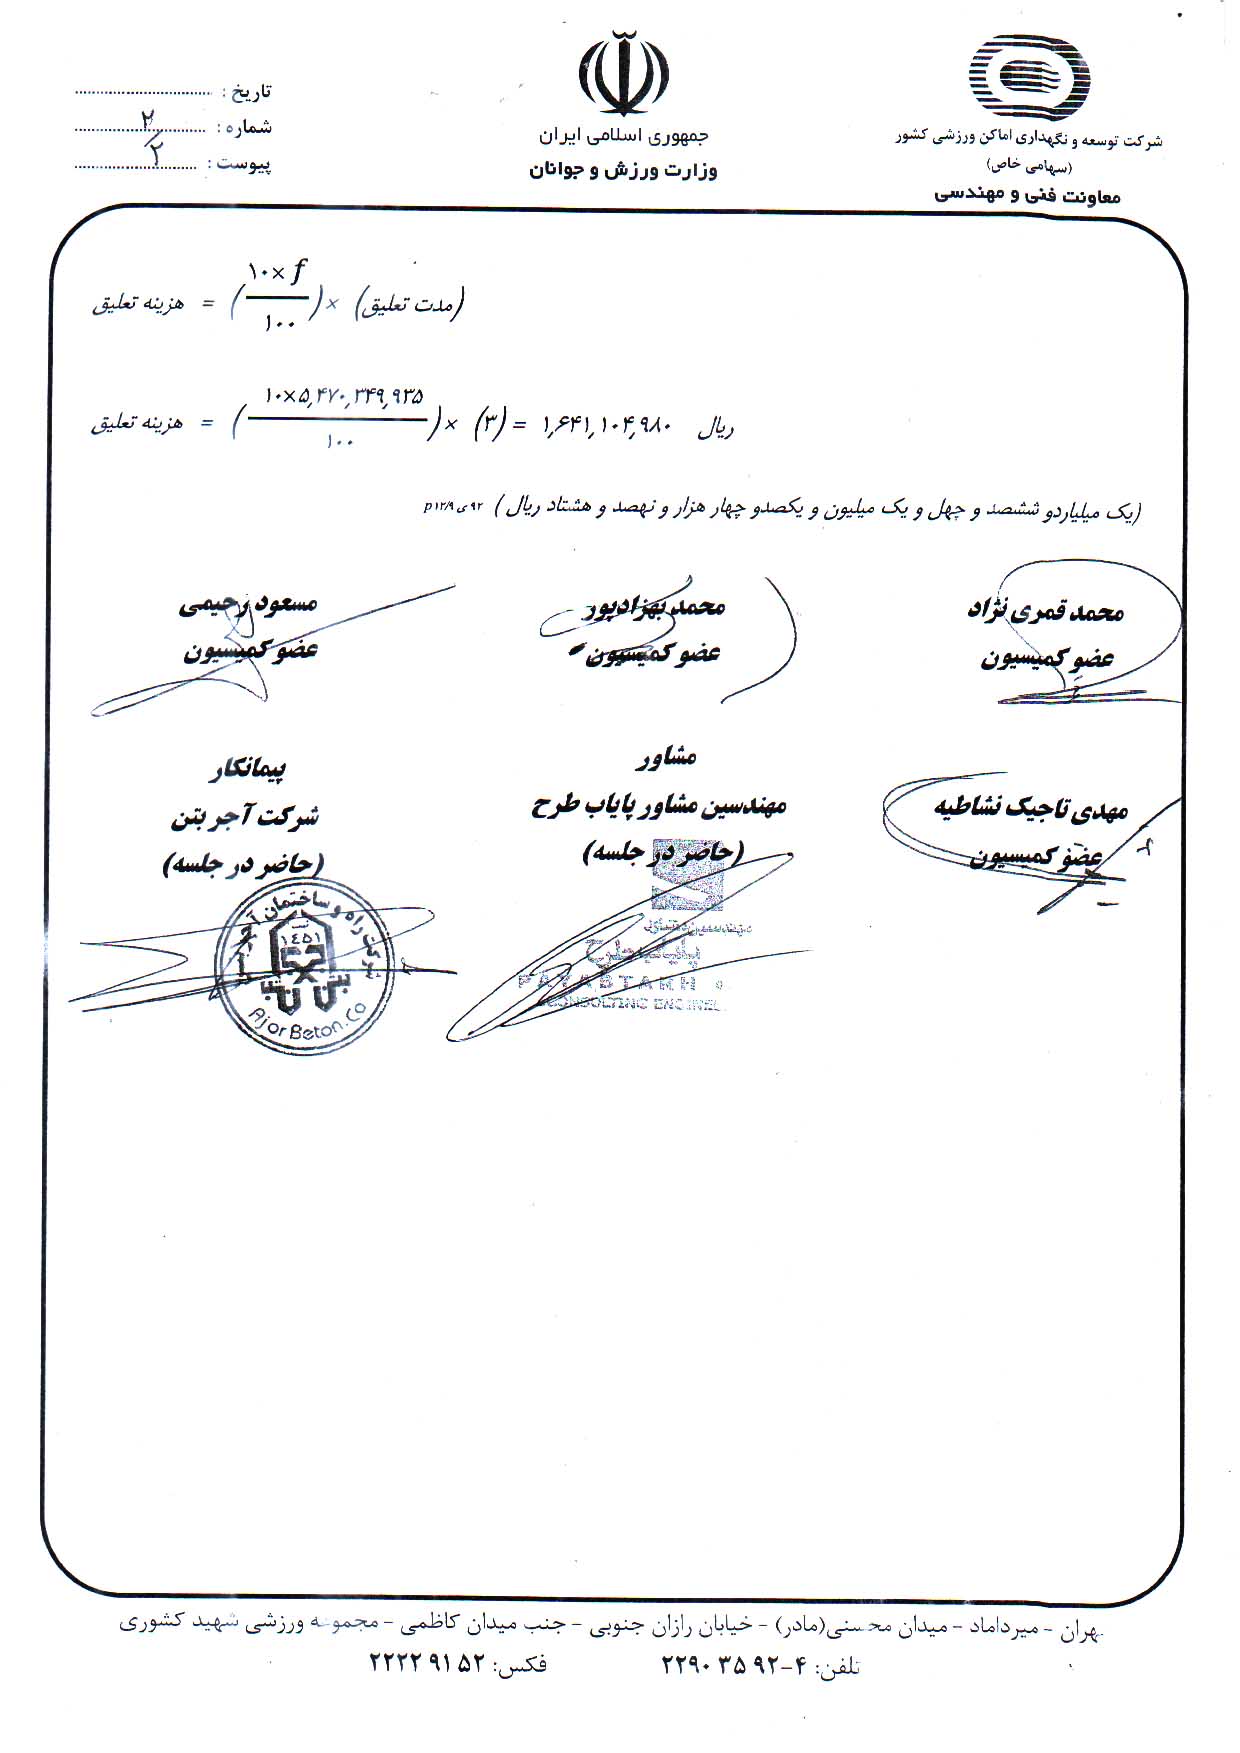 شرکت توسعه و نگهداری اماکن ورزشی کشور
(سهامی خاص)
معاونت فنی و مهندسی
جمهوری اسلامی ایران
وزارت ورزش و جوانان
تاریخ :
شماره : ۲
پیوست : ۲
هزینه تعلیق = (۱۰×f / ۱۰۰) × (مدت تعلیق)
هزینه تعلیق = (۱۰×۵,۴۷۰,۳۴۹,۹۳۵ / ۱۰۰) × (۳) = ۱,۶۴۱,۱۰۴,۹۸۰ ریال
(یک میلیاردو ششصد و چهل و یک میلیون و یکصدو چهار هزار و نهصد و هشتاد ریال)
محمد قمری نژاد
عضو کمیسیون
محمد بهزادپور
عضو کمیسیون
مسعود رحیمی
عضو کمیسیون
مهدی تاجیک نشاطیه
عضو کمیسیون
مشاور
مهندسین مشاور پایاب طرح
(حاضر در جلسه)
پیمانکار
شرکت آجر بتن
(حاضر در جلسه)
شرکت راه و ساختمان آجر بتن
ثبت
۱٤٥۱
AjorBeton.Co
مهندسین مشاور
پایاب طرح
PAYAB TARH
CONSULTING ENGINEE
تهران - میرداماد - میدان محسنی(مادر) - خیابان رازان جنوبی - جنب میدان کاظمی - مجموعه ورزشی شهید کشوری
تلفن: ۴-۹۲ ۳۵ ۲۲۹۰ فکس: ۵۲ ۹۱ ۲۲۲۲